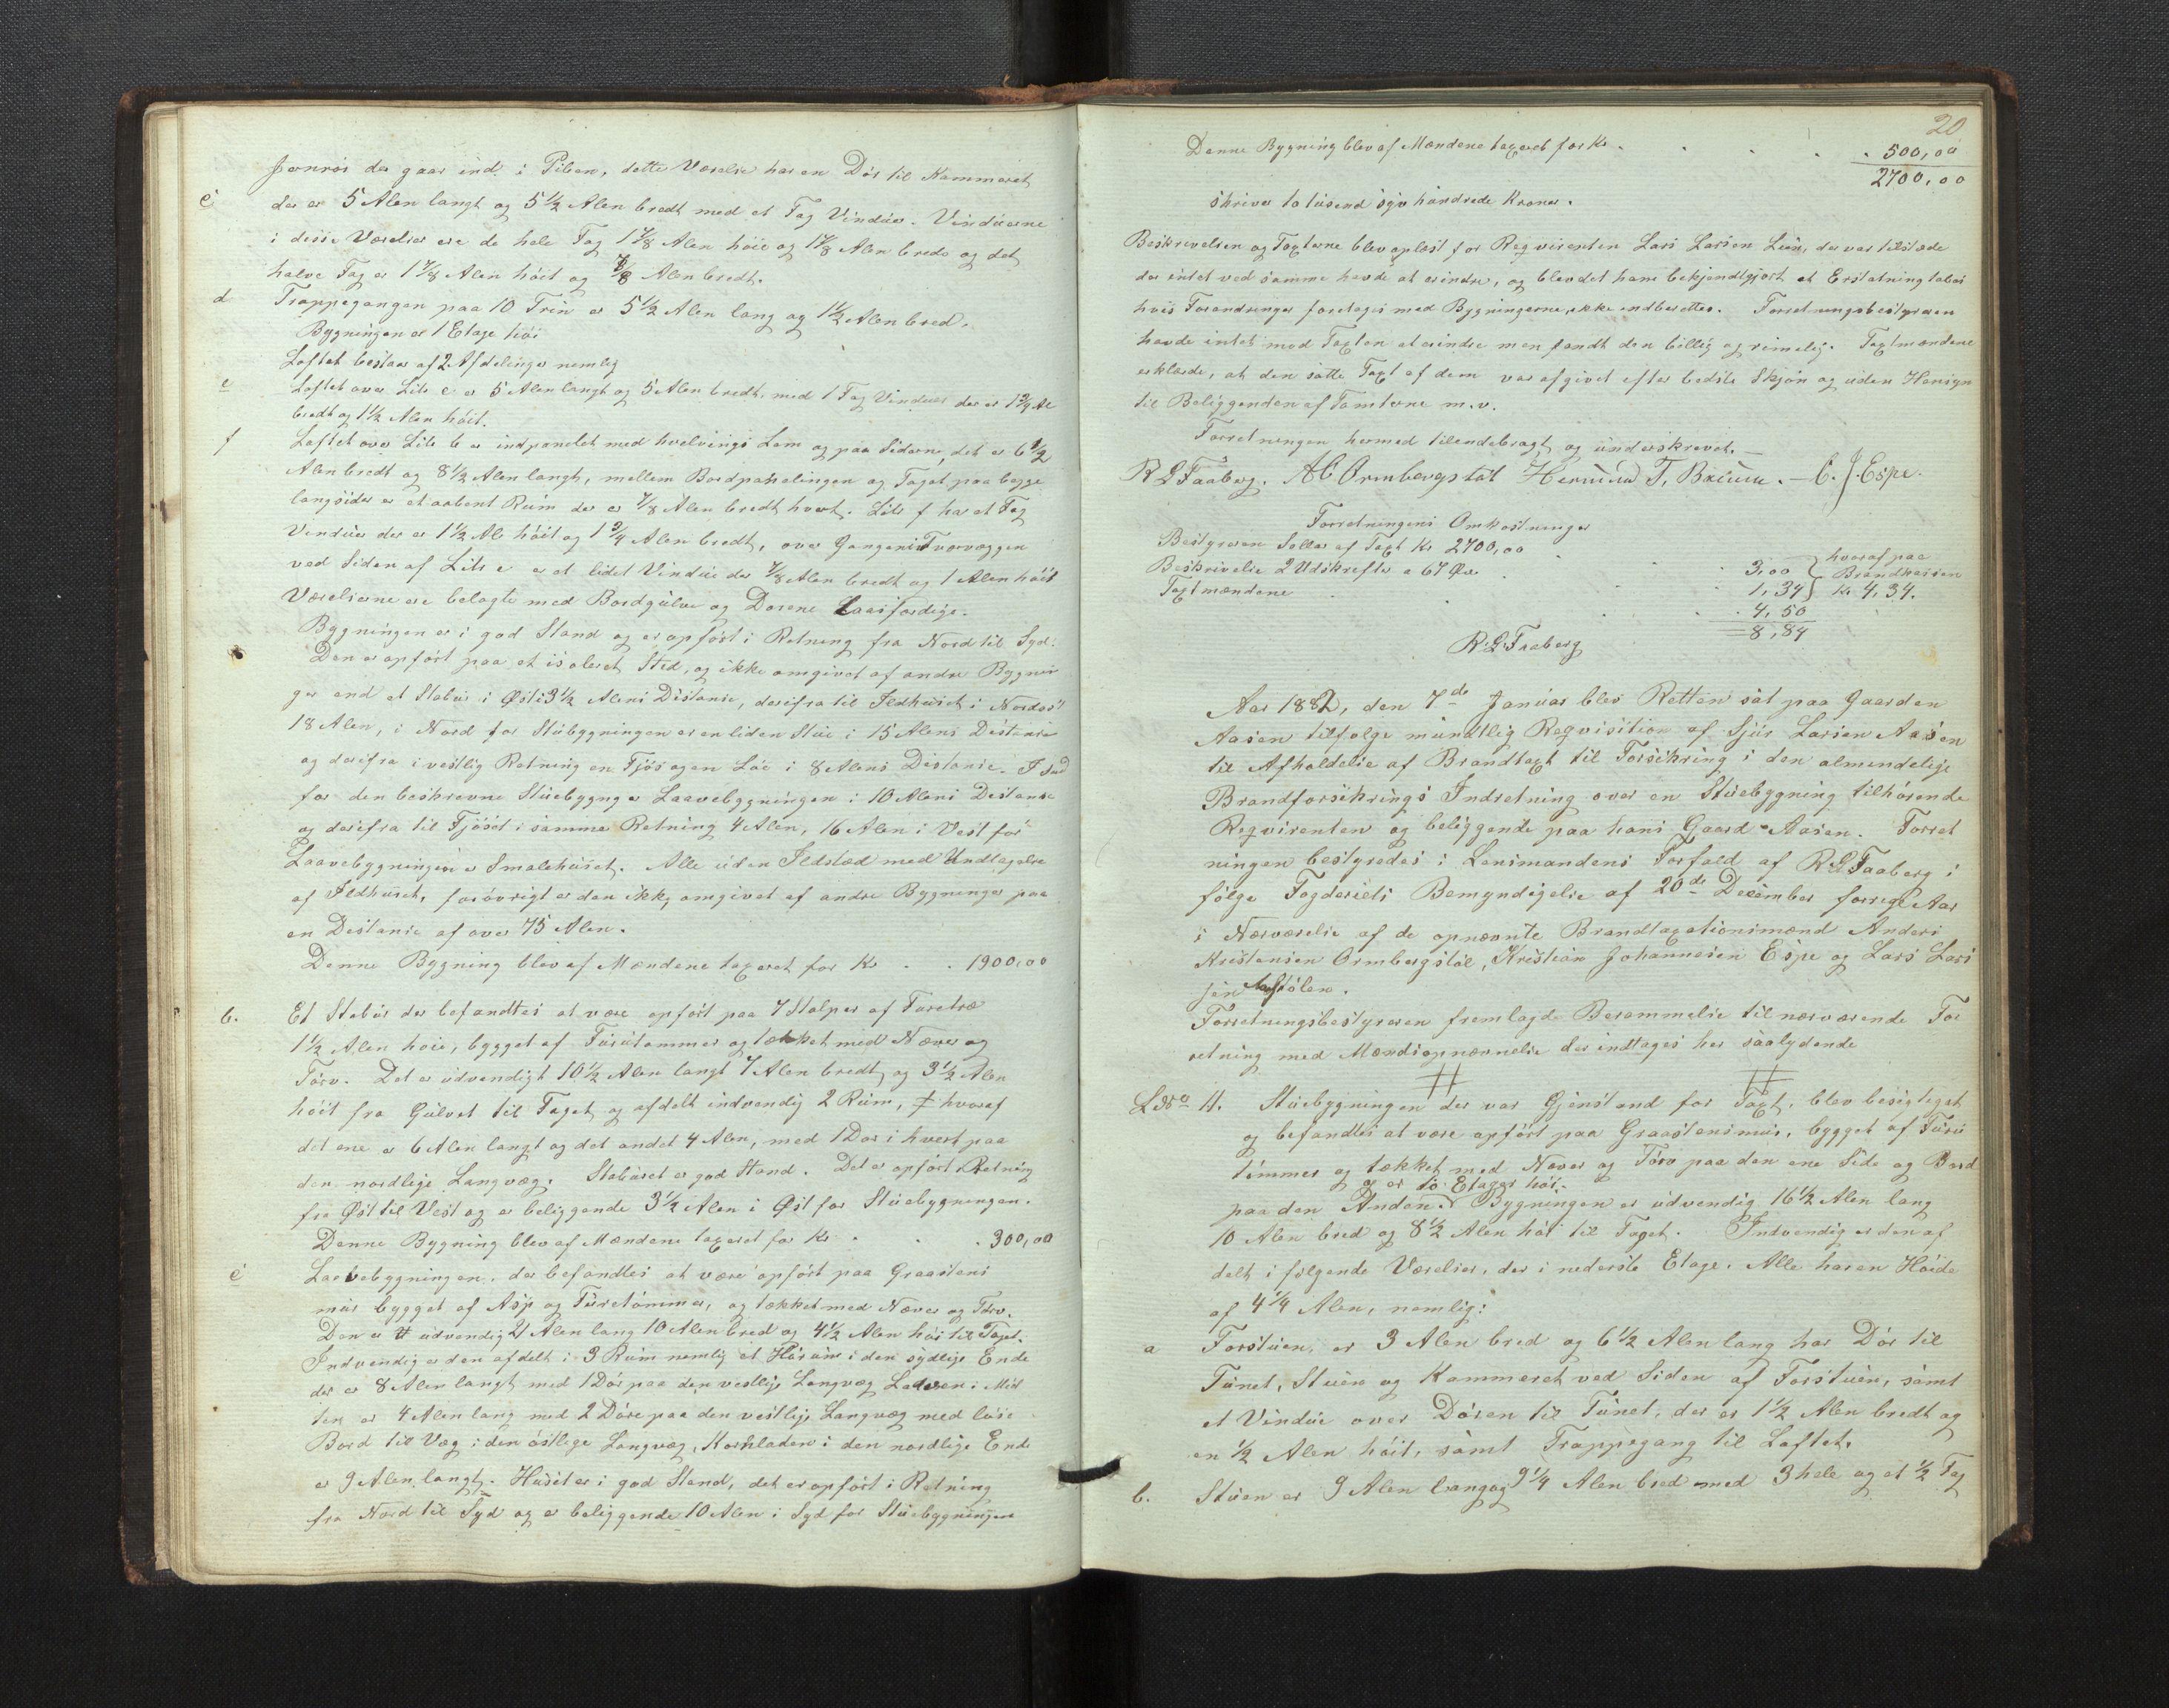 Jernrør der gaar ind i Piben, dette Værelse har en Dør til Kammeret
c der er 5 Alen langt og 5 1/2 Alen bredt med et Fag Vinduer. Vinduerne
i disse Værelser ere de hele Fag 1 7/8 Alen høie og 1 7/8 Alen brede og det
halve Fag er 1 7/8 Alen høit og 7/8 Alen bredt.
d Trappegangen paa 10 Trin er 5 1/2 Alen lang og 1 1/2 Alen bred.
Bygningen er 1 Etage høi
Loftet bestaar af 2 Afdelinger nemlig
e Loftet over Litr c er 5 Alen langt og 5 Alen bredt, med 1 Fag Vinduer der er 1 3/4 Al
bredt og 1 1/2 Alen høit.
f Loftet over Litr b er indpanelet med hvelvings Lem og paa Siderne, det er 6 1/2
Alen bredt og 8 1/2 Alen langt, mellem Bordpanelingen og Taget paa begge
langsider er et aabent Rum der er 7/8 Alen bredt hvert. Litr f har et Fag
Vinduer der er 1 1/2 Al høit og 1 3/4 Alen bredt, over Gangen i Tværvæggen
ved Siden af Litr e er et lidet Vindue der 7/8 Alen bredt og 1 Alen høit
Værelserne ere belagte med Bordgulve og Dørene Laasfærdige.
Bygningen er i god Stand og er opført i Retning fra Nord til Syd.
Den er opført paa et isoleret Sted, og ikke omgivet af andre Bygnin
ger end et Stabur i Øst i 3 1/2 Alens Distanse, derifra til Ildhuset i Nordøst
18 Alen, i Nord for Stubygningen er en liden Stue i 15 Alens Distanse
og derifra i vestlig Retning en Fjøs og en Løe i 8 Alens Distanse. I Syd
for den beskrevne Stuebygng er Laavebygningen i 10 Alens Distanse
og derifra til Fjøset i samme Retning 4 Alen, 16 Alen i Vest for
Laavebygningen er Smalehuset. Alle uden Ildsted med Undtagelse
af Ildhuset, forøvrigt er den ikke omgivet af andre Bygninger paa
en Distanse af over 75 Alen.
Denne Bygning blev af Mændene taxeret for Kr . . 1900,00
b. Et Stabur der befandtes at være opført paa 7 Stolper af Furetræ
1 1/2 Alen høie, bygget af Furutømmer og tækket med Næver og
Tørv. Det er udvendigt 10 1/2 Alen langt 7 Alen bredt, og 3 1/2 Alen
høit fra Gulvet til Taget og afdelt indvendig 2 Rum, hvoraf
det ene er 6 Alen langt og det andet 4 Alen, med 1 Dør i hvert paa
den nordlige Langvæg. Staburet er god Stand. Det er opført i Retning
fra Øst til Vest og er beliggende 3 1/2 Alen i Øst for Stuebygningen.
Denne Bygning blev af Mændene taxeret for Kr . . . 300,00
c Laavebygningen, der befandtes at være opført paa Graastens
mur bygget af Asp og Furetømmer, og tækket med Næver og Tørv.
Den er udvendig 21 Alen lang 10 Alen bred og 4 1/2 Alen høi til Taget.
Indvendig er den afdelt i 3 Rum nemlig et Hørum i den sydlige Ende
der er 8 Alen langt med 1 Dør paa den vestlige Langvæg Laaven i Mid
ten er 4 Alen lang med 2 Døre paa den vestlige Langvæg med løse
Bord til Væg i den østlige Langvæg, Kornladen i den nordlige Ende
er 9 Alen langt. Huset er i god Stand, det er opført i Retning
fra Nord til Syd og er beliggende 10 Alen i Syd for Stuebygningen
20
Denne Bygning blev af Mændene taxeret for Kr . . . . . 500,00
2700,00
skriver to tusend syv hundrede Kroner.
Beskrivelsen og Taxterne blev oplæst for Reqvirenten Lars Larsen Lien, der var tilstæde
der intet ved samme havde at erindre, og blev det ham bekjendtgjort at Erstatning tabes
hvis Forandringer foretages med Bygningerne, ikke indberettes. Forretningsbestyreren
havde intet mod Taxten at erindre men fandt den billig og rimelig. Taxtmændene
erklærede, at den satte Taxt af dem var afgivet efter bedste Skjøn og uden Hensyn
til Beliggenden af Tomterne m.v.
Forretningen hermed tilendebragt og underskrevet.
R L Faaberg. A C Ormbergstøl Hermund T. Bakum. – C. J. Espe.
Forretningens Omkostninger
Bestyreren Sallær af Taxt Kr 2700,00 . . . 3,00 } hvoraf paa
Beskrivelse 2 Udskrifter a 67 Øre . . . 1,34 } Brandkassen
Taxtmændene . . . 4,50 Kr 4,34.
8,84
R. L. Faaberg
Aar 1882, den 7de Januar blev Retten sat paa Gaarden
Aasen tilfølge mundtlig Reqvisition af Sjur Larsen Aasen
til Afholdelse af Brandtaxt til Forsikring i den almindelige
Brandforsikrings Indretning over en Stuebygning tilhørende
Reqvirenten og beliggende paa hans Gaard Aasen. Forret
ningen bestyredes i Lensmandens Forfald af R L Faaberg i
følge Fogderiets Bemyndigelse af 20de December forrige Aar
i Nærværelse af de opnævnte Brandtaxationsmænd Anders
Kristensen Ormbergstøl, Kristian Johannesen Espe og Lars Lars
sen Stølen.
Forretningsbestyreren fremlagde Berammelse til nærværende For
retning med Mændsopnævnelse der indtages her saalydende
# #
LNo 11. Stuebygningen der var Gjenstand for Taxt, blev besigtiget
og befandtes at være opført paa Graastensmur, bygget af Furu
tømmer og tækket med Næver og Tørv paa den ene Side og Bord
og er to Etager høi.
paa den Anden. Bygningen er udvendig 16 1/2 Alen lang
10 Alen bred og 8 1/2 Alen høi til Taget. Indvendig er den af
delt i følgende Værelser, der i nederste Etage. Alle har en Høide
af 4 1/4 Alen, nemlig:
a Forstuen, er 3 Alen bred og 6 1/2 Alen lang har Dør til
Tunet, Stuen og Kammeret ved Siden af Forstuen, samt
et Vindue over Døren til Tunet, der er 1 1/2 Alen bredt og
en 1/2 Alen høit, samt Trappegang til Loftet.
b. Stuen er 9 Alen lang og 9 1/4 Alen bred med 3 hele og et 1/2 Fag